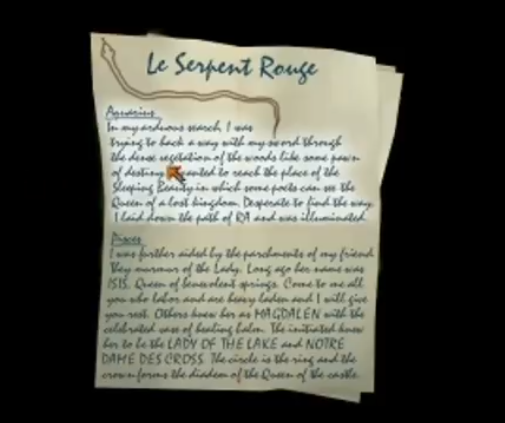 Le Serpent Rouge
Aquarius
In my arduous search, I was
trying to hack a way with my sword through
the dense vegetation of the woods like some pawn
of destiny. wanted to reach the place of the
Sleeping Beauty in which some poets can see the
Queen of a lost kingdom. Desperate to find the way,
I laid down the path of RA and was illuminated.
Pisces
I was further aided by the parchments of my friend.
They murmur of the Lady. Long ago her name was
ISIS, Queen of benevolent springs. Come to me all
you who labor and are heavy laden and I will give
you rest. Others knew her as MAGDALEN with the
celebrated vase of healing balm. The initiated know
her to be the LADY OF THE LAKE and NOTRE
DAME DES CROSS. The circle is the ring and the
crown forms the diadem of the Queen of the castle.